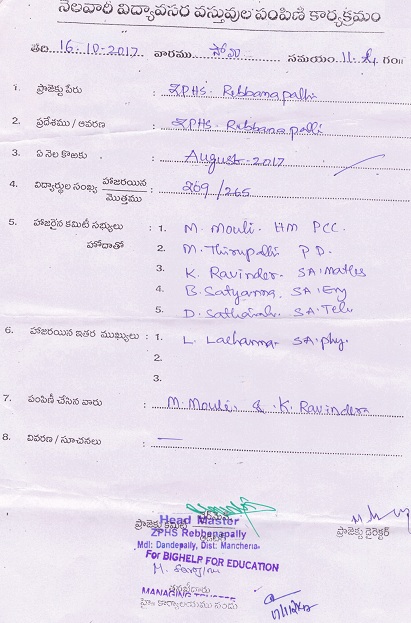 నెలవారీ విద్యావసర వస్తువుల పంపిణి కార్యక్రమం
తేది 16.10.2017 వారము సోమ సమయం 11
1. ప్రాజెక్టు పేరు : ZPHS - Rebbanapalli
2. ప్రదేశము / ఆవరణ : ZPHS - Rebbanapalli
3. ఏ నెల కొఱకు : August - 2017
4. విద్యార్థుల సంఖ్య హాజరయిన / మొత్తము : 269 / 265
5. హాజరైన కమిటీ సభ్యులు : 1. M. Mouli. HM PCC.
హోదాతో 2. M. Thirupathi P D.
3. K. Ravinder. SA. Maths
4. B. Satyanna. SA. Eng
5. D. SA. Telu
6. హాజరయిన ఇతర ముఖ్యులు : 1. L. Lachanna. SA. phy.
2.
3.
7. పంపిణీ చేసిన వారు : M. Mouli & K. Ravinder
8. వివరణ / సూచనలు : —
ప్రాజెక్టు కమిటీ
ప్రాజెక్టు డైరెక్టర్
Head Master
ZPHS Rebbenapally
Mdl: Dandepally, Dist: Mancherial
For BIGHELP FOR EDUCATION
MANAGING TRUSTEE